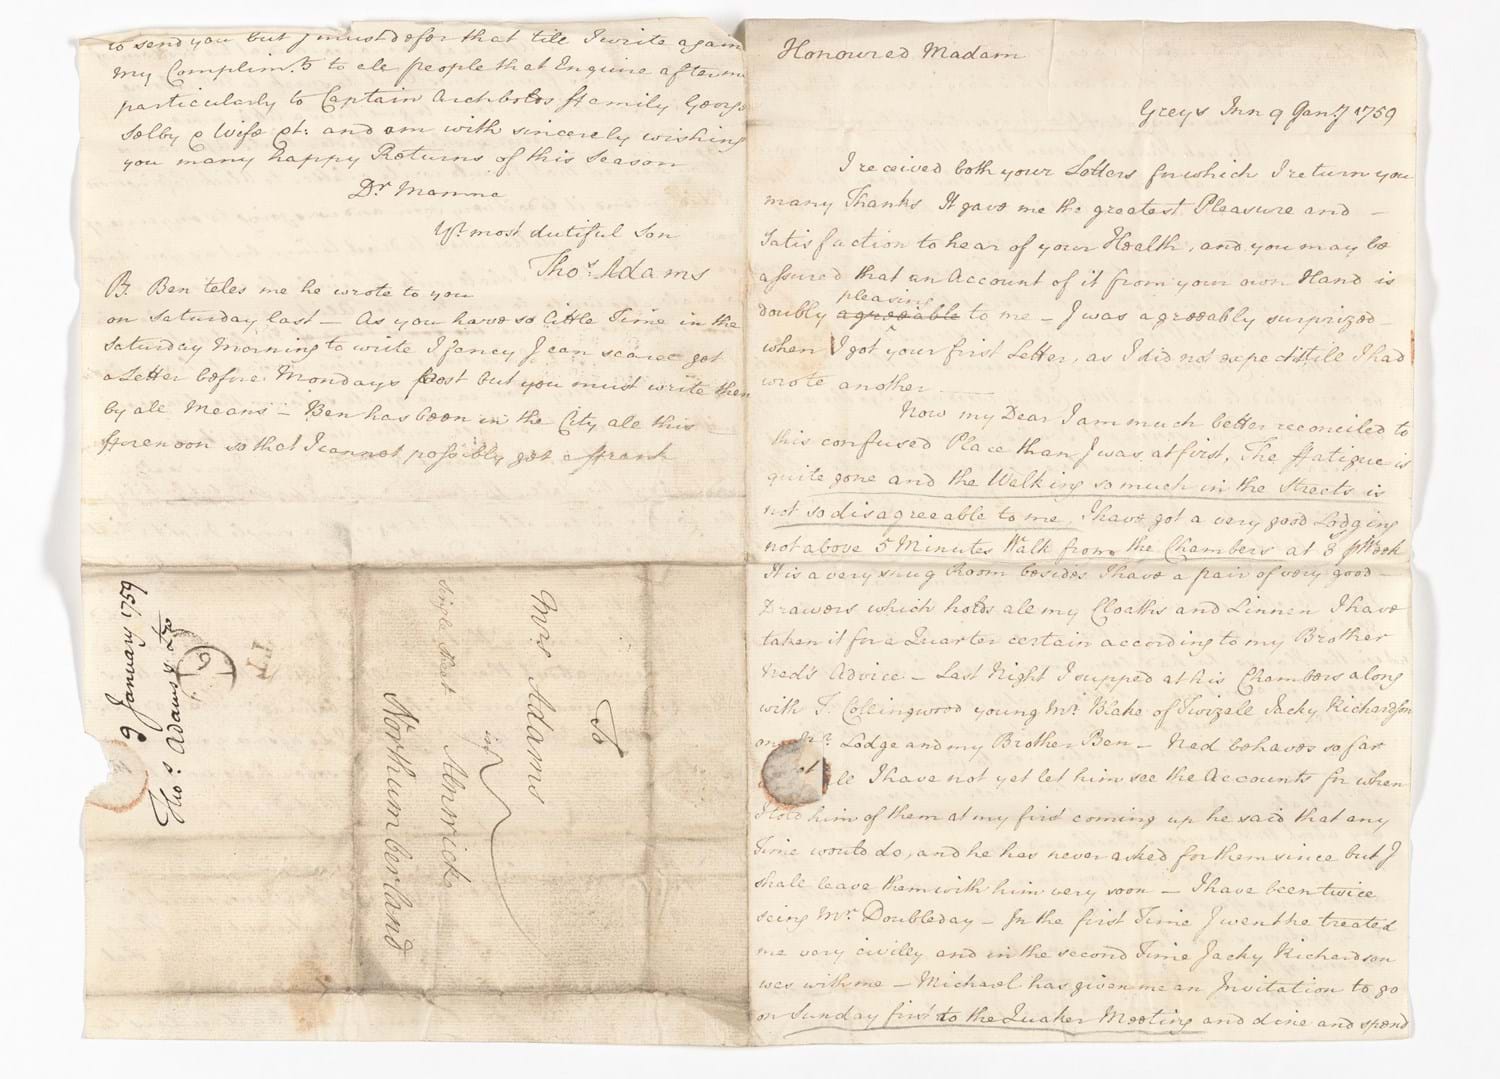 Honoured Madam
Greys Inn 9 Jan.y 1759
I received both your Letters for which I return you
many Thanks It gave me the greatest Pleasure and –
Satisfaction to hear of your Health, and you may be
assured that an Account of it from your own Hand is
pleasing
doubly agreeable to me – I was agreeably surprized –
when I got your first Letter, as I did not expect it till I had
wrote another –
Now my Dear I am much better reconciled to
this confused Place than I was at first. The ffatigue is
quite gone and the Walking so much in the Streets is
not so disagreeable to me. I have got a very good Lodging
not above 5 Minutes Walk from the Chambers at 3 p Week
It is a very snug Room besides I have a pair of very good –
Drawers which holds all my Cloaths and Linnen I have
taken it for a Quarter certain according to my Brother
Ned's Advice – Last Night I supped at his Chambers along
with T. Collingwood young Mr. Blake of Twizell Jacky Richardson
Lodge and my Brother Ben – Ned behaves so far
I have not yet let him see the Accounts for when
I told him of them at my first coming up he said that any
Time would do, and he has never asked for them since but I
shall leave them with him very soon – I have been twice
seing Mr. Doubleday – In the first Time I went he treated
me very civilly and in the second Time Jacky Richardson
was with me – Michael has given me an Invitation to go
on Sunday first to the Quaker Meeting and dine and spend
to send you but I must defer that till I write again
My Complim.ts to all people that Enquire after me
particularly to Captain Archbolds ffamily George
Selby & Wife &c. and am with sincerely wishing
you many happy Returns of this Season
Dr. Mamma
Yr. most dutiful Son
Thos. Adams
B. Ben tells me he wrote to you
on Saturday last – As you have so little Time in the
Saturday Morning to write I fancy I can scarce get
a Letter before Mondays post but you must write then
by all Means – Ben has been in the City all this –
fforenoon so that I cannot possibly get a ffrank
To
Mrs Adams
in
Alnwick
Northumberland
Single Sheet
9 January 1759
Thos. Adams